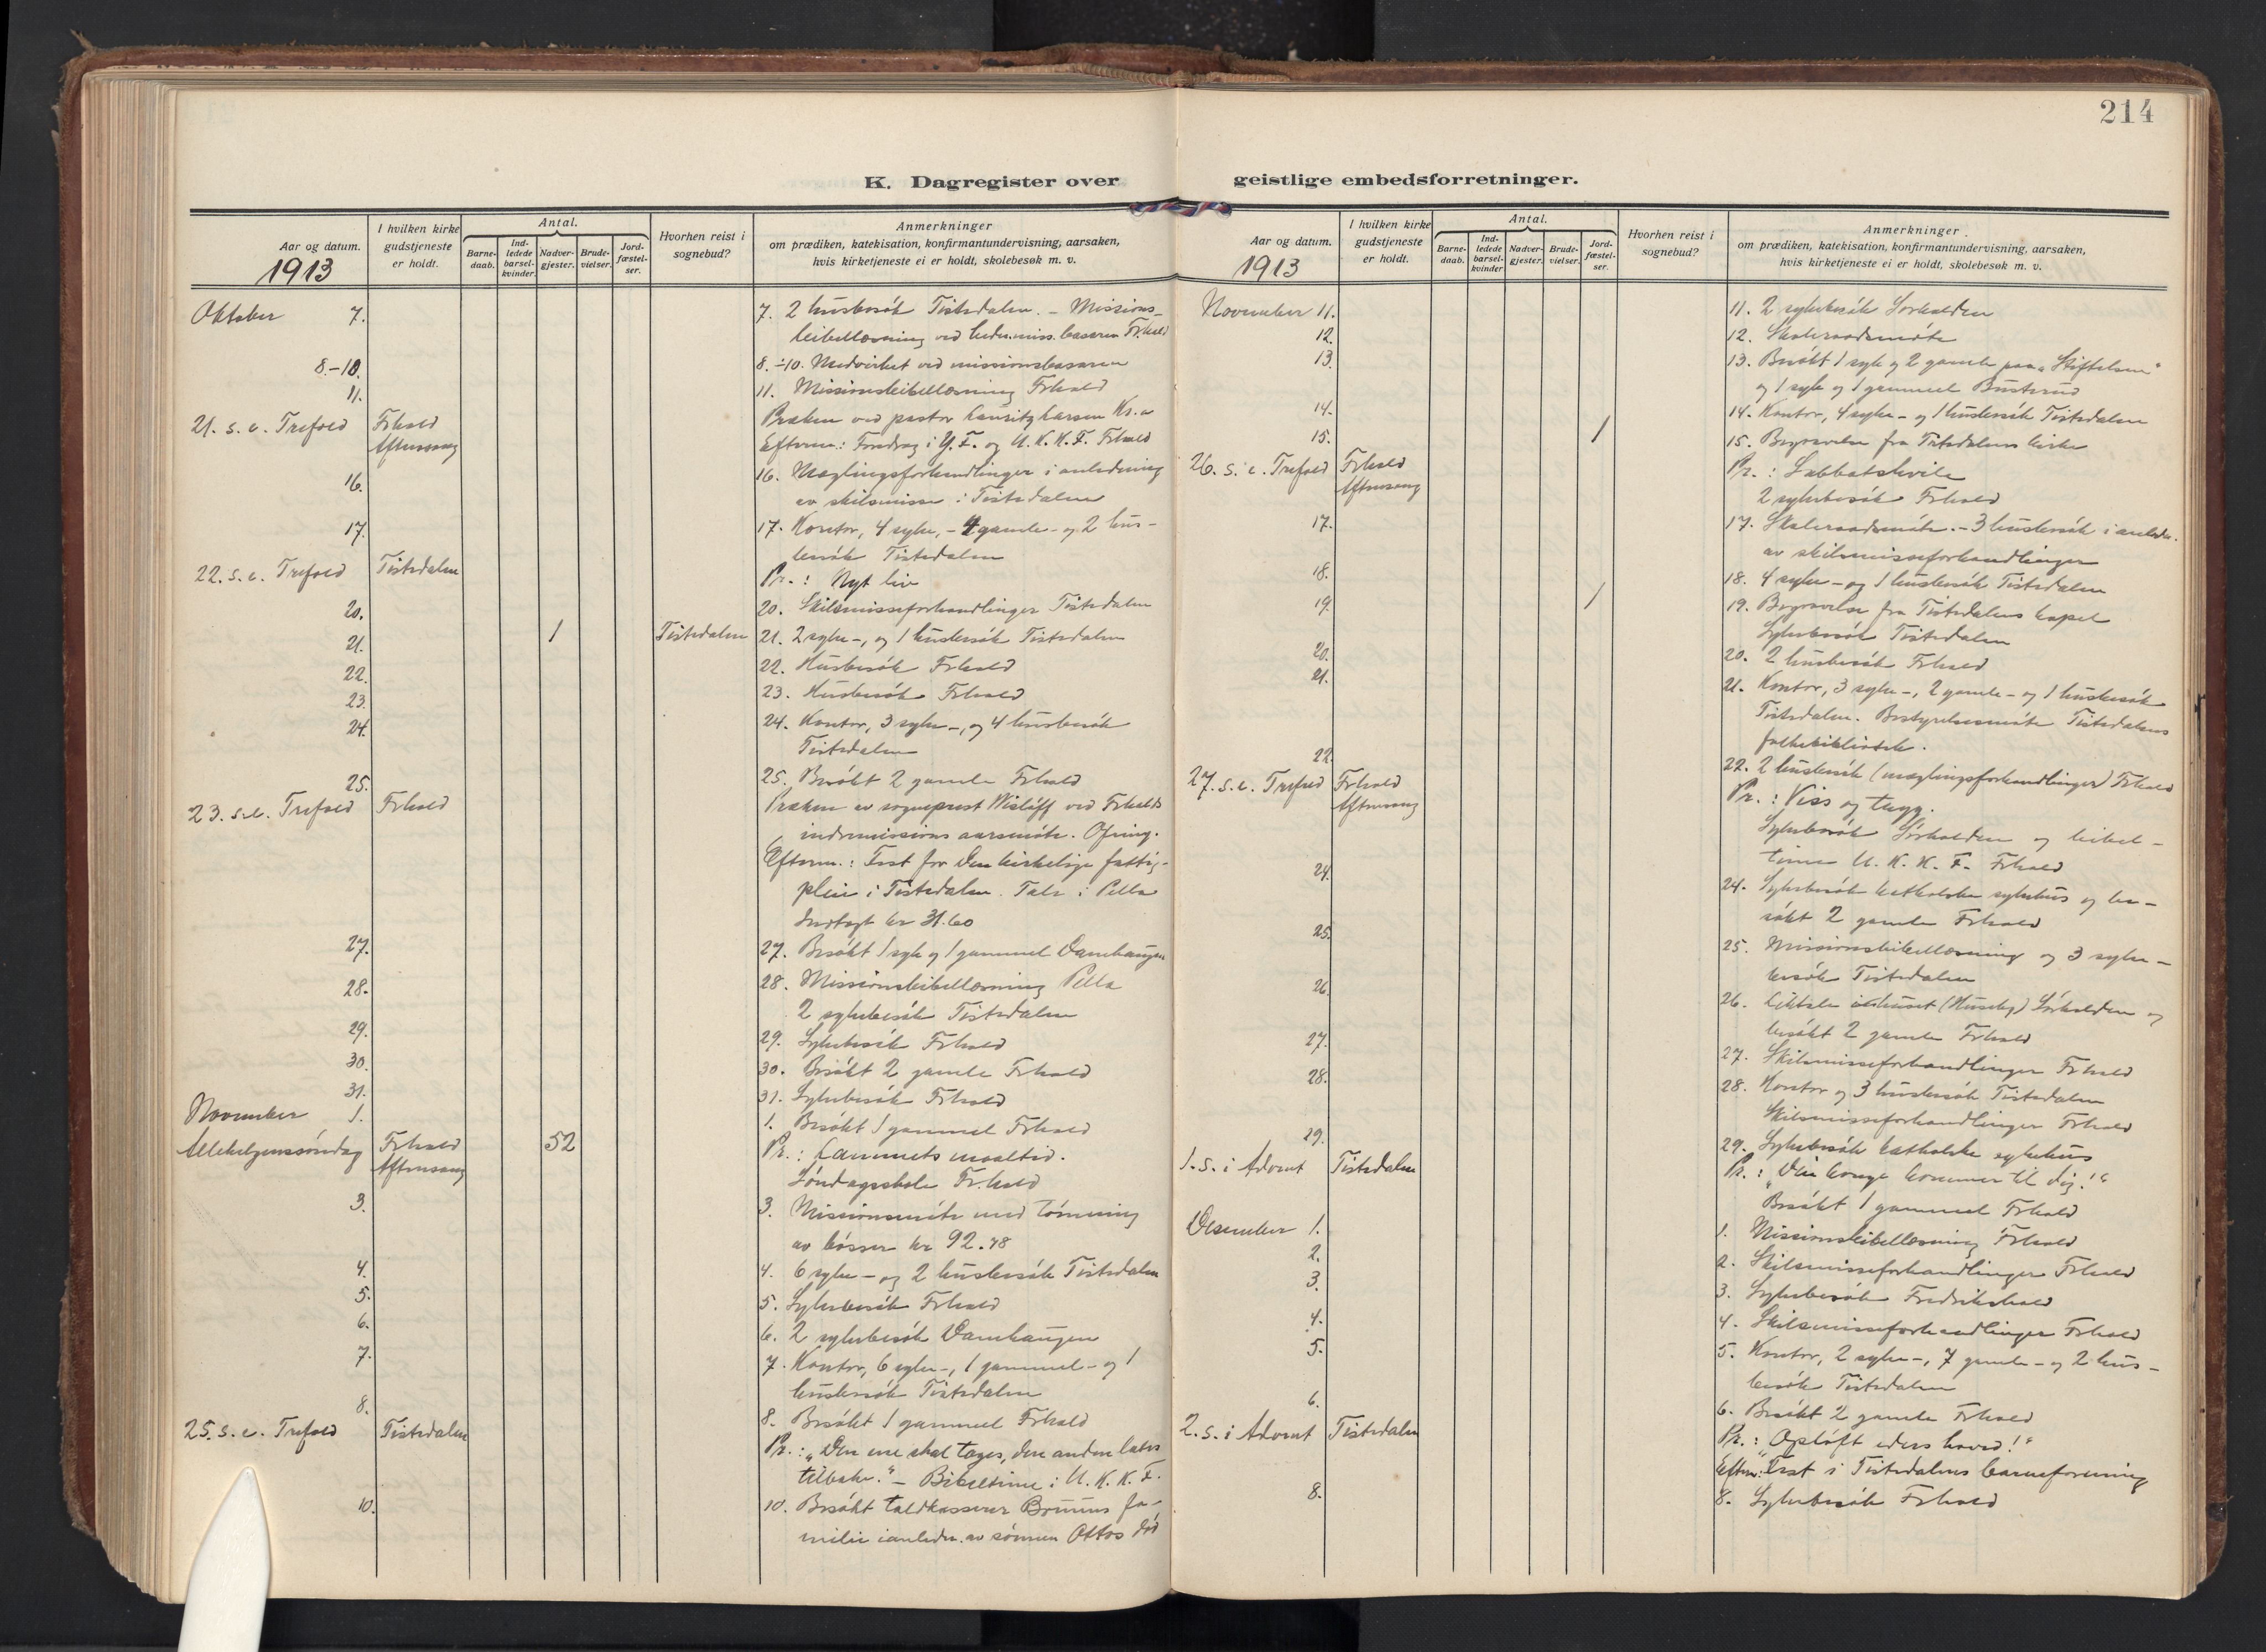 214
K. Dagregister over geistlige embedsforretninger.
Aar og datum.
1913
I hvilken kirke gudstjeneste er holdt.
Antal.
Barne-daab.
Ind-ledede barsel-kvinder
Nadver-gjester.
Brude-vielser.
Jord-fæstel-ser.
Hvorhen reist i sognebud?
Anmerkninger
om prædiken, katekisation, konfirmantundervisning, aarsaken,
hvis kirketjeneste ei er holdt, skolebesøk m. v.
Oktober 7. 7. 2 husbesøk Tistedalen. - Missions-
bibellæsning ved hedn.miss. basaren Fr.hald
8.-10. 8.-10. Medvirket ved missionsbasaren
11. 11. Missionsbibellæsning Frhald
21. s. e. Trefold Frhald Præken ved pastor Lauritz Larsen Kr.a
Aftensang Efterm.: Foredrag i Y.F. og U.K.K.F. Frhald
16. 16. Mæglingsforhandlinger i anledning
av skilsmisse i Tistedalen
17. 17. Kontor, 4 syke, - 4 gamle- og 2 hus-
besøk Tistedalen
22. s. e. Trefold Tistedalen Pr.: Nyt liv
20. 20. Skilsmisseforhandlinger Tistedalen
21. 1 Tistedalen 21. 2 syke-, og 1 husbesøk Tistedalen
22. 22. Husbesøk Frhald
23. 23. Husbesøk Frhald
24. 24. Kontor, 3 syke-, og 4 husbesøk
Tistedalen
25. 25. Besøkt 2 gamle Frhald
23. s.e. Trefold Frhald Præken av sogneprest Wisløff ved Frhalds
indremissions aarsmøte. Ofring.
Efterm.: Fest for den kirkelige fattig-
pleie i Tistedalen. Tale i Pella
Indtægt kr 31.60
27. 27. Besøkt 1 syk og 1 gammel Damhaugen
28. 28. Missionsbibellæsning Pella
2 sykebesøk Tistedalen
29. 29. Sykebesøk Frhald
30. 30. Besøkt 2 gamle Frhald
31. 31. Sykebesøk Frhald
November 1. 1. Besøkt 1 gammel Frhald
Allehelgenssøndag Frhald 52 Pr.: Lammets maaltid.
Aftensang Søndagsskole Fr.hald
3. 3. Missionsmøte med tømning
av bøsser kr 92.48
4. 4. 6 syke- og 2 husbesøk Tistedalen
5. 5. Sykebesøk Frhald
6. 6. 2 sykebesøk Damhaugen
7. 7. Kontor, 6 syke-, 1 gammel- og 1
husbesøk Tistedalen
8. 8. Besøkt 1 gammel Frhald
25. s. e. Trefold Tistedalen Pr.: "Den ene skal tages, den anden lates
tilbake." - Bibeltime i U.K.K.F.
10. 10. Besøkt toldkasserer Bruuns fa-
milie i anledn. av sønnen Ottos død
Aar og datum.
1913
I hvilken kirke gudstjeneste er holdt.
Antal.
Barne-daab.
Ind-ledede barsel-kvinder
Nadver-gjester.
Brude-vielser.
Jord-fæstel-ser.
Hvorhen reist i sognebud?
Anmerkninger
om prædiken, katekisation, konfirmantundervisning, aarsaken,
hvis kirketjeneste ei er holdt, skolebesøk m. v.
November 11. 11. 2 sykebesøk Sørhalden
12. 12. Skoleraadsmøte
13. 13. Besøkt 1 syk og 2 gamle paa "Stiftelsen"
og 1 syk og 1 gammel Busterud
14. 14. Kontor, 4 syke- og 1 husbesøk Tistedalen
15. 1 15. Begravelse fra Tistedalens kirke
26. s. e. Trefold Frhald Pr.: Sabbatshvile
Aftensang 2 sykebesøk Frhald
17. 17. Skoleraadsmøte. - 3 husbesøk i anledn.
av skilsmisseforhandlinger
18. 18. 4 syke- og 1 husbesøk Tistedalen
19. 1 19. Begravelse fra Tistedalens kapel
Sykebesøk Tistedalen
20. 20. 2 husbesøk Frhald
21. 21. Kontor, 3 syke-, 2 gamle- og 1 husbesøk
Tistedalen. Bestyrelsesmøte Tistedalens
folkebibliotek.
22. 22. 2 husbesøk (mæglingsforhandlinger) Frhald
27. s.e. Trefold Frhald Pr.: Viss og trygg.
Aftensang Sykebesøk Sørhalden og bibel-
time U.K.K.F. Frhald
24. 24. Sykebesøk katholske sykehus og be-
søkt 2 gamle Frhald
25. 25. Missionsbibellæsning og 3 syke-
besøk Tistedalen
26. 26. Liktale (Huseby) Sørhalden og
besøkt 2 gamle Frhald
27. 27. Skilsmisseforhandlinger Frhald
28. 28. Kontor og 3 husbesøk Tistedalen
Skilsmisseforhandlinger Frhald
29. 29. Sykebesøk katholske sykehus
1. s. i Advent Tistedalen Pr.: "Din konge kommer til dig!"
Besøkt 1 gammel Frhald
Desember 1. 1. Missionsbibellæsning Frhald
2. 2. Skilsmisseforhandlinger Frhald
3. 3. Sykebesøk Fredrikshald
4. 4. Skilsmisseforhandlinger Frhald
5. 5. Kontor, 2 syke-, 7 gamle- og 2 hus-
besøk Tistedalen
6. 6. Besøkt 2 gamle Frhald
2. s. i Advent Tistedalen Pr.: "Opløft eders hoved!"
Efterm: Fest i Tistedalens barneforening
8. 8. Sykebesøk Frhald